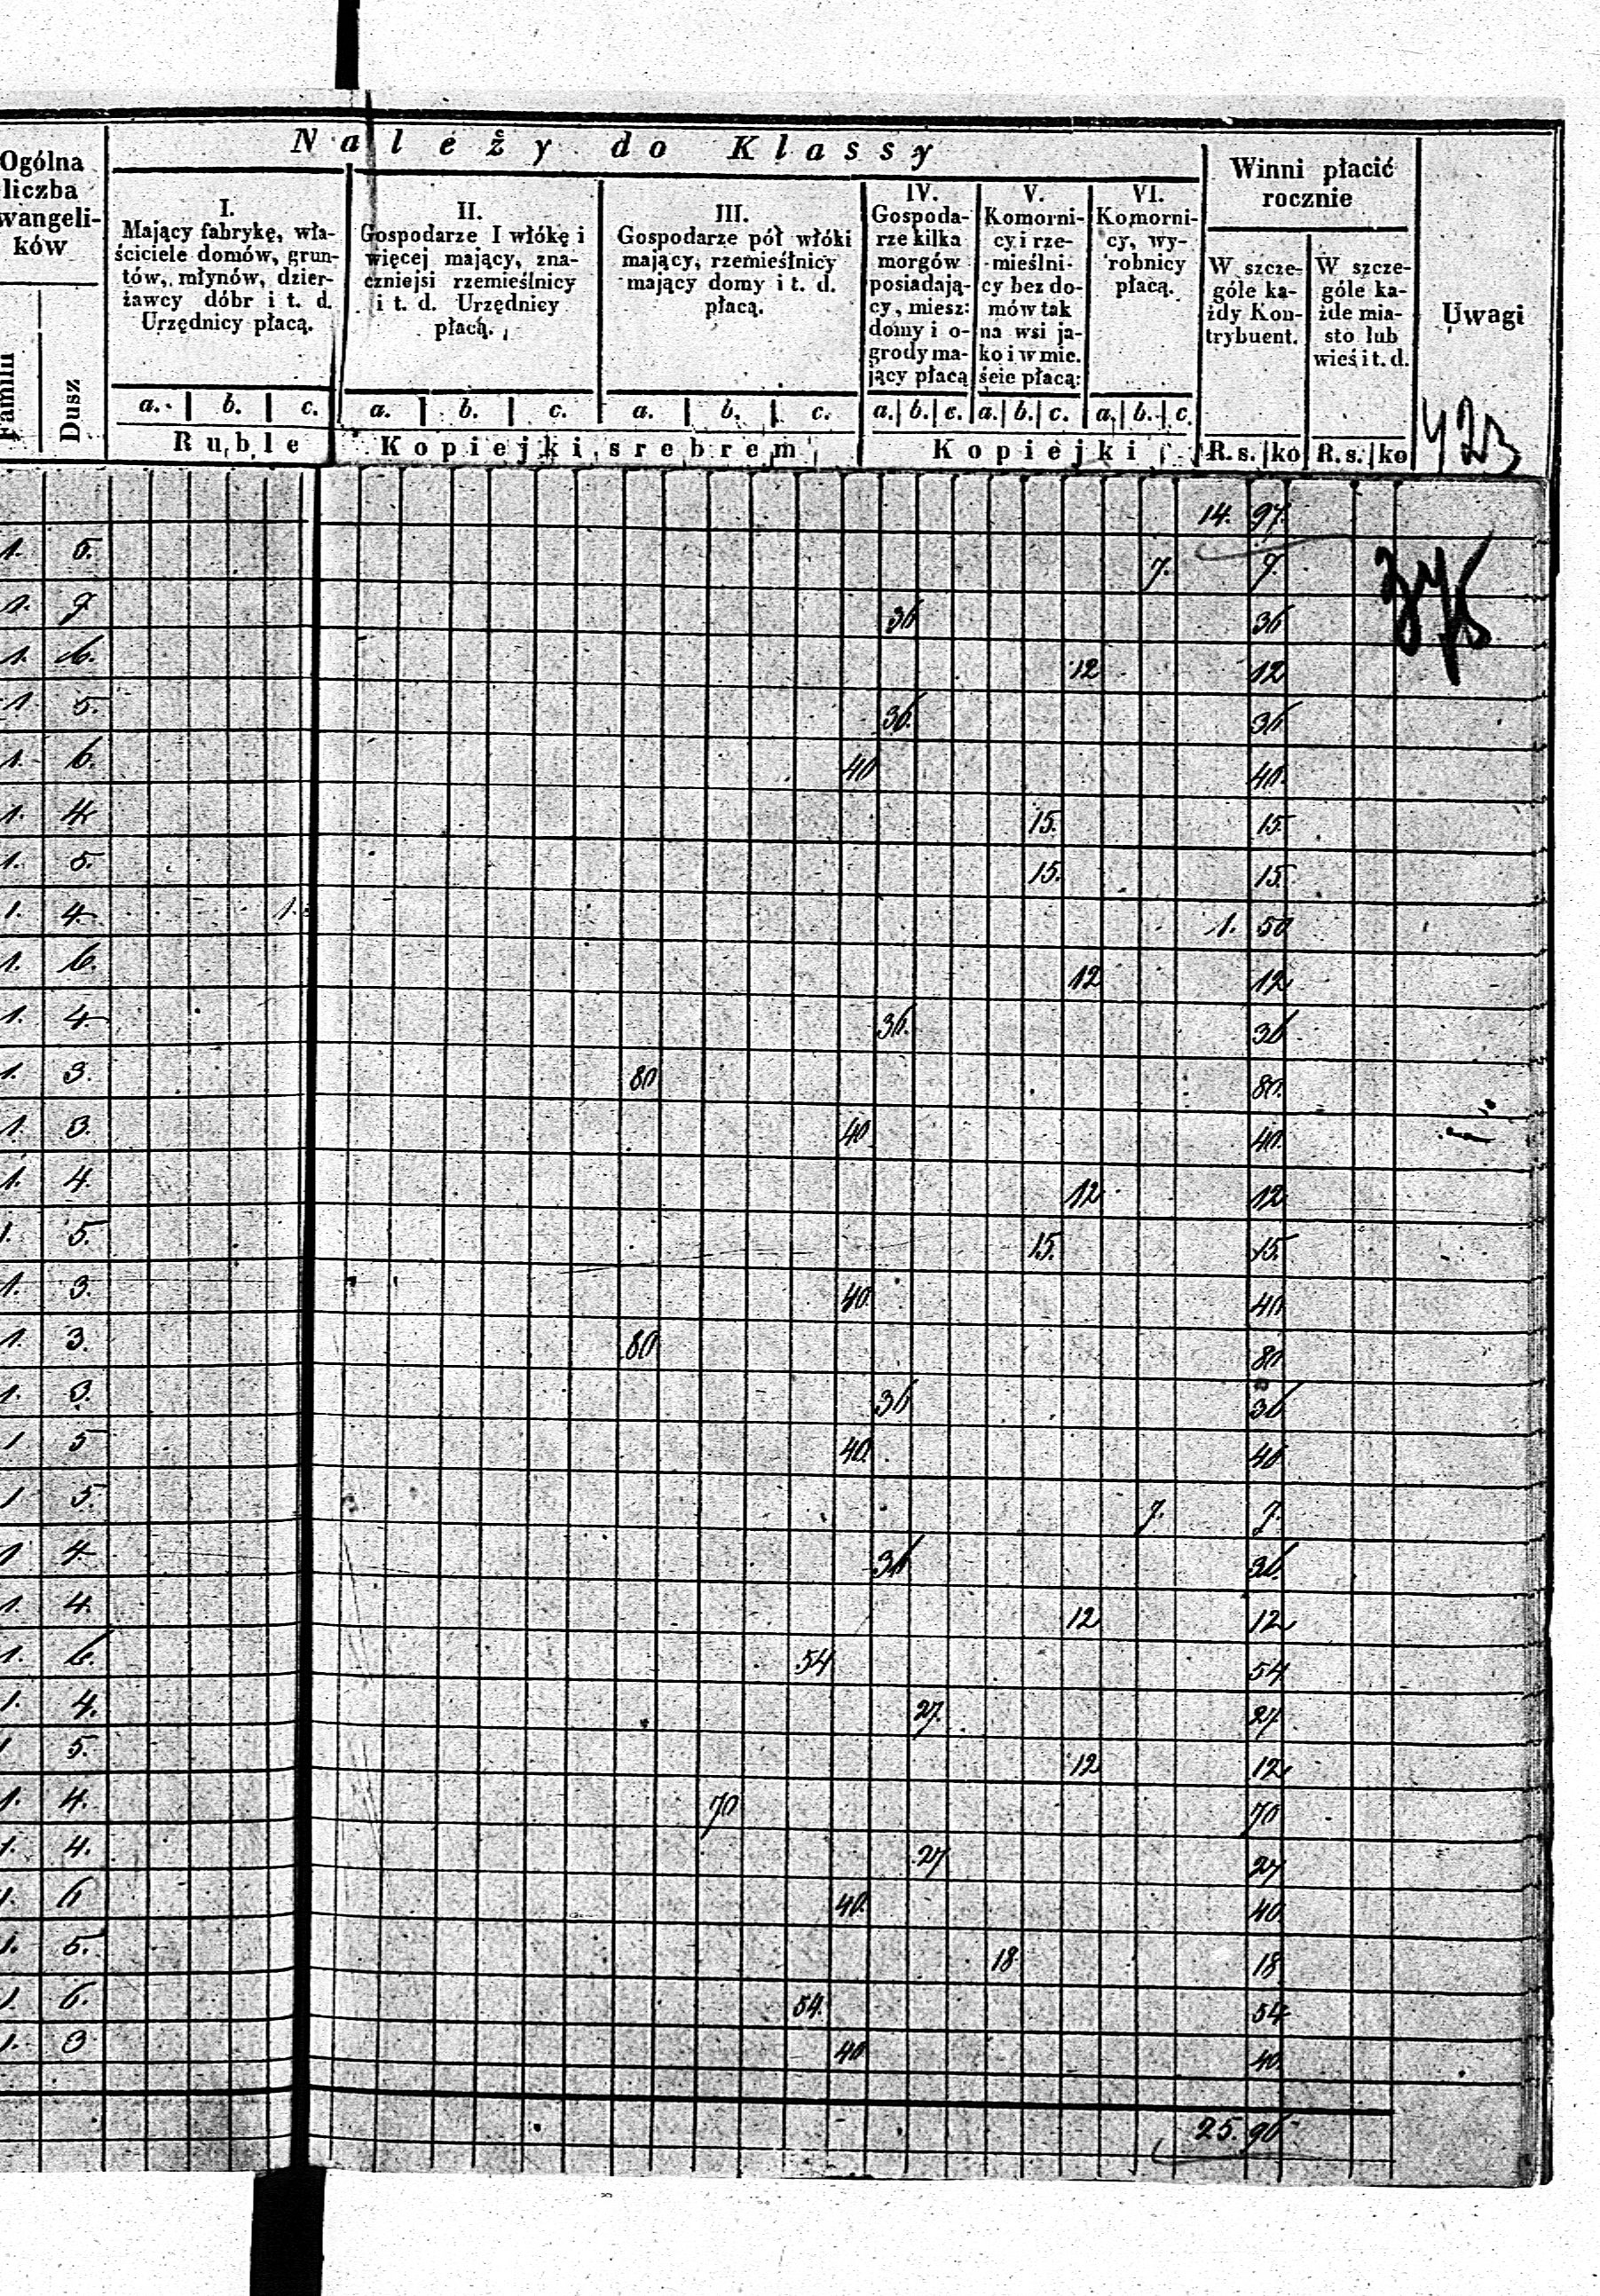 Należy do Klassy
Ogólna
liczba
wangeli-
ków
Familii
Dusz
I.
Mający fabrykę, wła-
ściciele domów, grun-
tów, młynów, dzier-
żawcy dóbr i t. d.
Urzędnicy płacą.
a. b. c.
Ruble
II.
Gospodarze I włókę i
więcej mający, zna-
czniejsi rzemieślnicy
i t. d. Urzędnicy
płacą.
a. b. c.
III.
Gospodarze pół włóki
mający, rzemieślnicy
mający domy i t. d.
płacą.
a. b. c.
Kopiejki srebrem
IV.
Gospoda-
rze kilka
morgów
posiadają-
cy, miesz:
domy i o-
grody ma-
jący płacą
a. b. c.
V.
Komorni-
cy i rze-
mieślni-
cy bez do-
mów tak
na wsi ja-
ko i w mie.
ście płacą:
a. b. c.
VI.
Komorni-
cy, wy-
robnicy
płacą.
a. b. c.
Kopiejki
Winni płacić
rocznie
W szcze-
góle ka-
żdy Kon-
trybuent.
R. s. ko
W szcze-
góle ka-
żde mia-
sto lub
wieś i t. d.
R. s. ko
Uwagi
423
14. 97.
1. 5. 7. 7.
1. 7 36 36
1. 6. 12 12
1. 5. 36. 36
1. 6. 40 40.
1. 4. 15. 15.
1. 5. 15. 15.
1. 4. 1. 1. 50
1. 6. 12 12
1. 4. 36. 36
1. 3. 80 80.
1. 3. 40. 40.
1. 4. 12 12
1. 5. 15. 15
1. 3. 40. 40
1. 3. 80. 80
1. 3. 36 36
1 5 40. 40
1 5. 7. 7.
1 4. 36 36
1. 4. 12 12
1. 6. 54 54
1. 4. 27. 27
1 5. 12 12
1. 4. 70 70
1. 4. 27 27
1. 6 40. 40.
1. 5. 18 18.
1. 6. 54. 54
1. 3 40 40.
25. 96